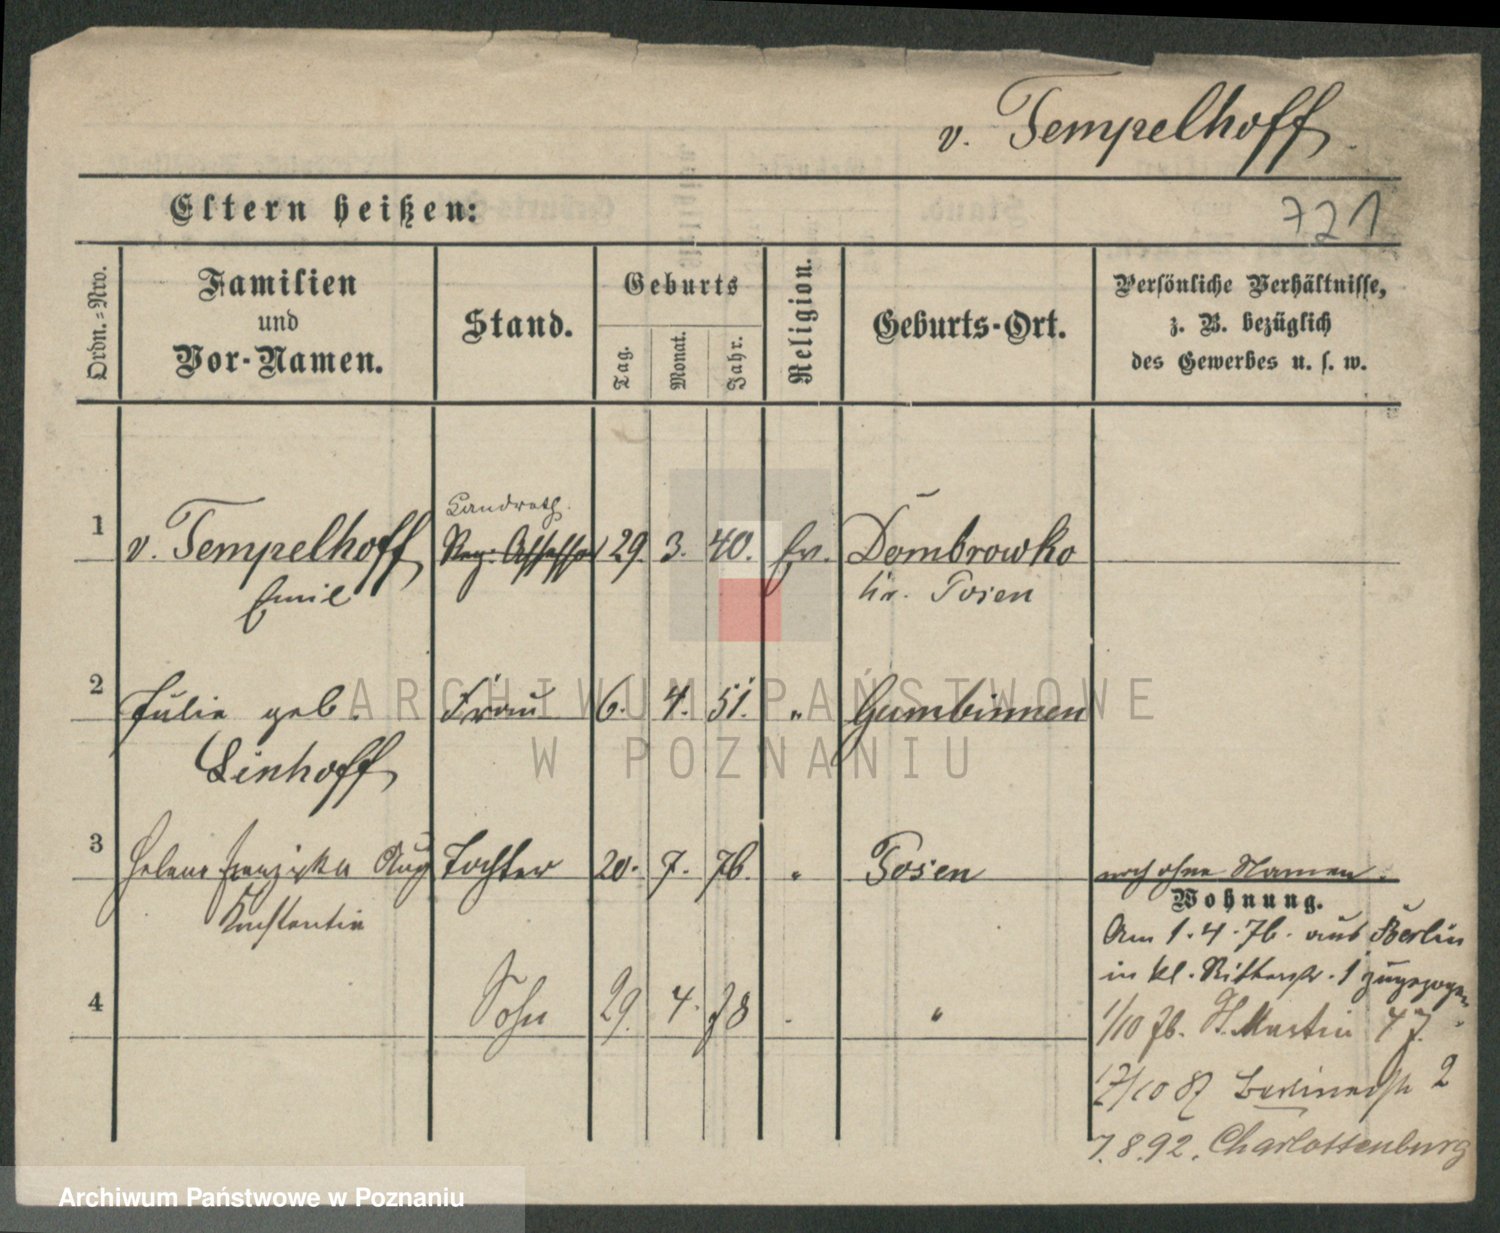 v. Tempelhoff.
Eltern heißen:
721
Ordn.=Nro.
Familien
und
Vor-Namen.
Stand.
Geburts
Tag.
Monat.
Jahr.
Religion.
Geburts-Ort.
Persönliche Verhältnisse,
z. B. bezüglich
des Gewerbes u. s. w.
Landrath.
1 v. Tempelhoff Reg: Assessor 29. 3. 40. Ev. Dombrowko
Emil Kr. Posen
2 Julie geb. Frau 6. 4. 51. " Gumbinnen
Linhoff
3 Helene Franziska Aug Tochter 20. 7. 76. " Posen noch ohne Namen.
Konstantin
Wohnung.
Am 1.4.76. aus Berlin
in kl. Ritterstr. 1 zugezogen
4 Sohn 29. 4. 78 "
1/10 76. St. Martin 47.
17/10 87 Berlinerstr 2
7.8.92. Charlottenburg
ARCHIWUM PAŃSTWOWE
W POZNANIU
Archiwum Państwowe w Poznaniu